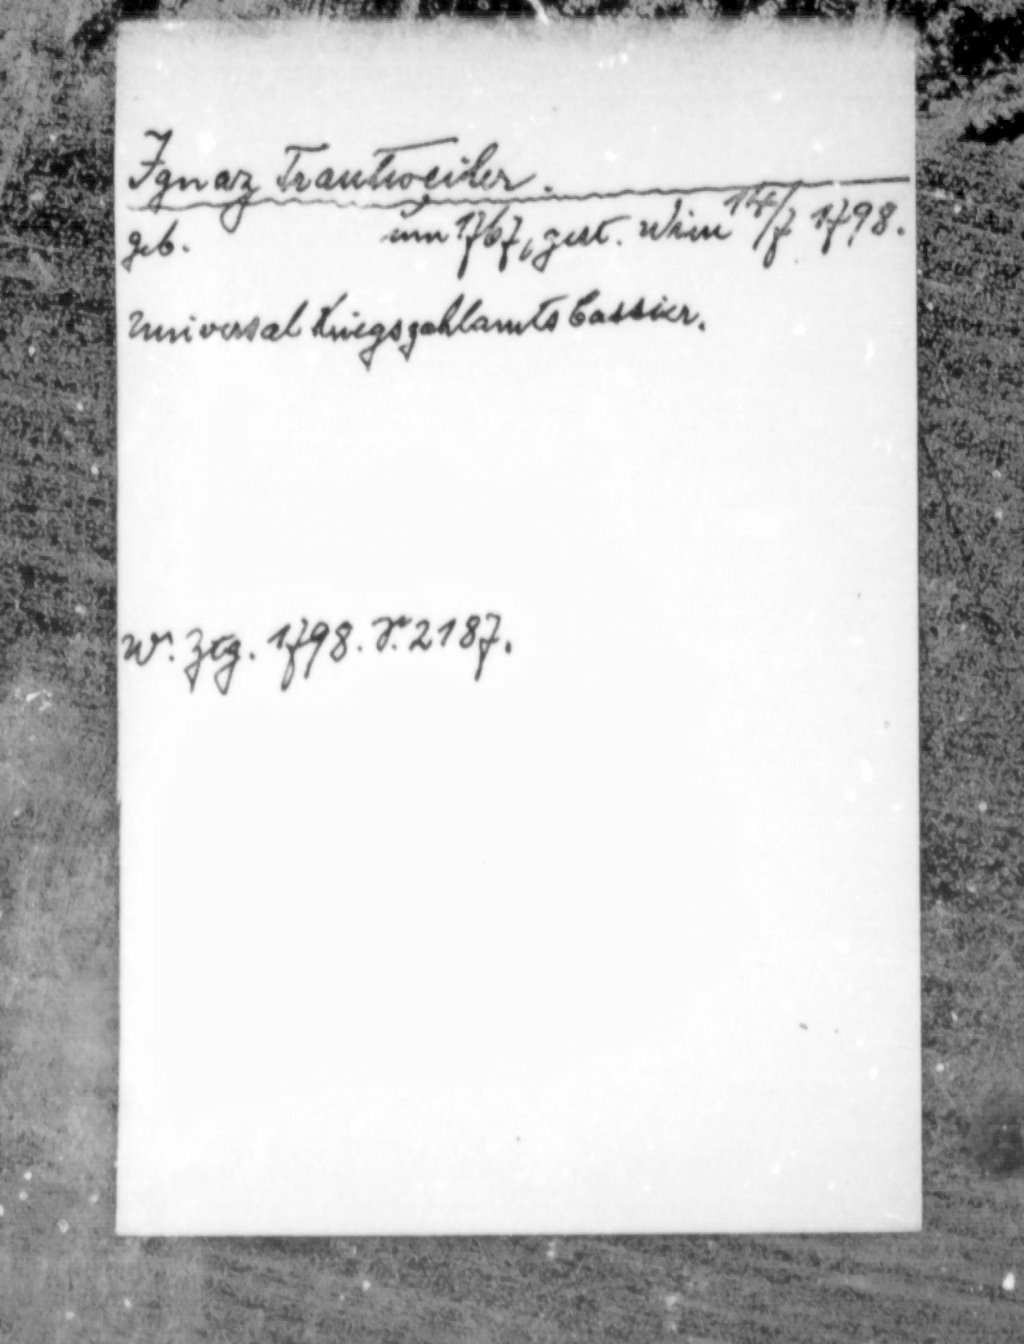 Ignaz Trautweiler.
geb. um 1767, gest. Wien 14/7 1798.
Universal Kriegszahlamts Cassier.
W. Ztg. 1798. S. 2187.